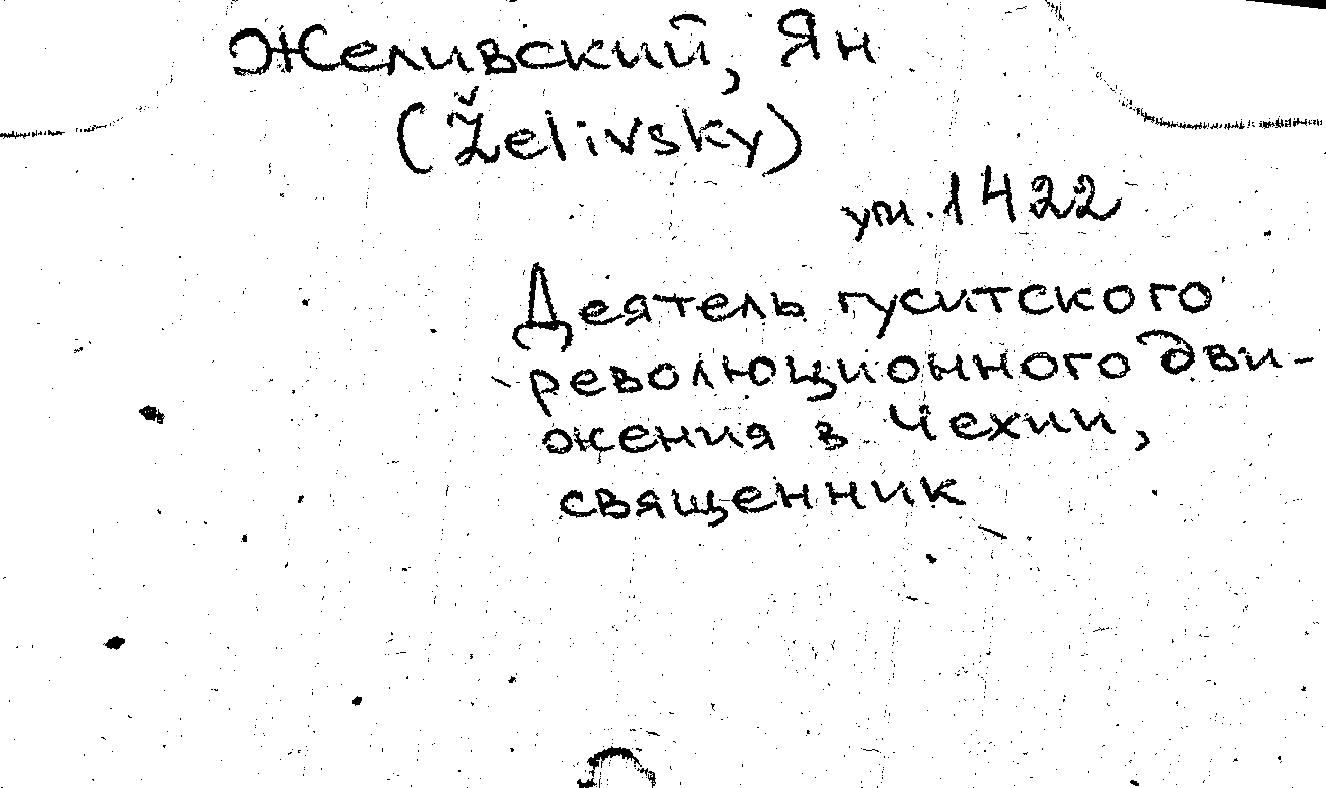 Желивский, Ян
(Želivsky)
ум. 1422
Деятель гуситского
революционного дви-
жения в Чехии,
священник